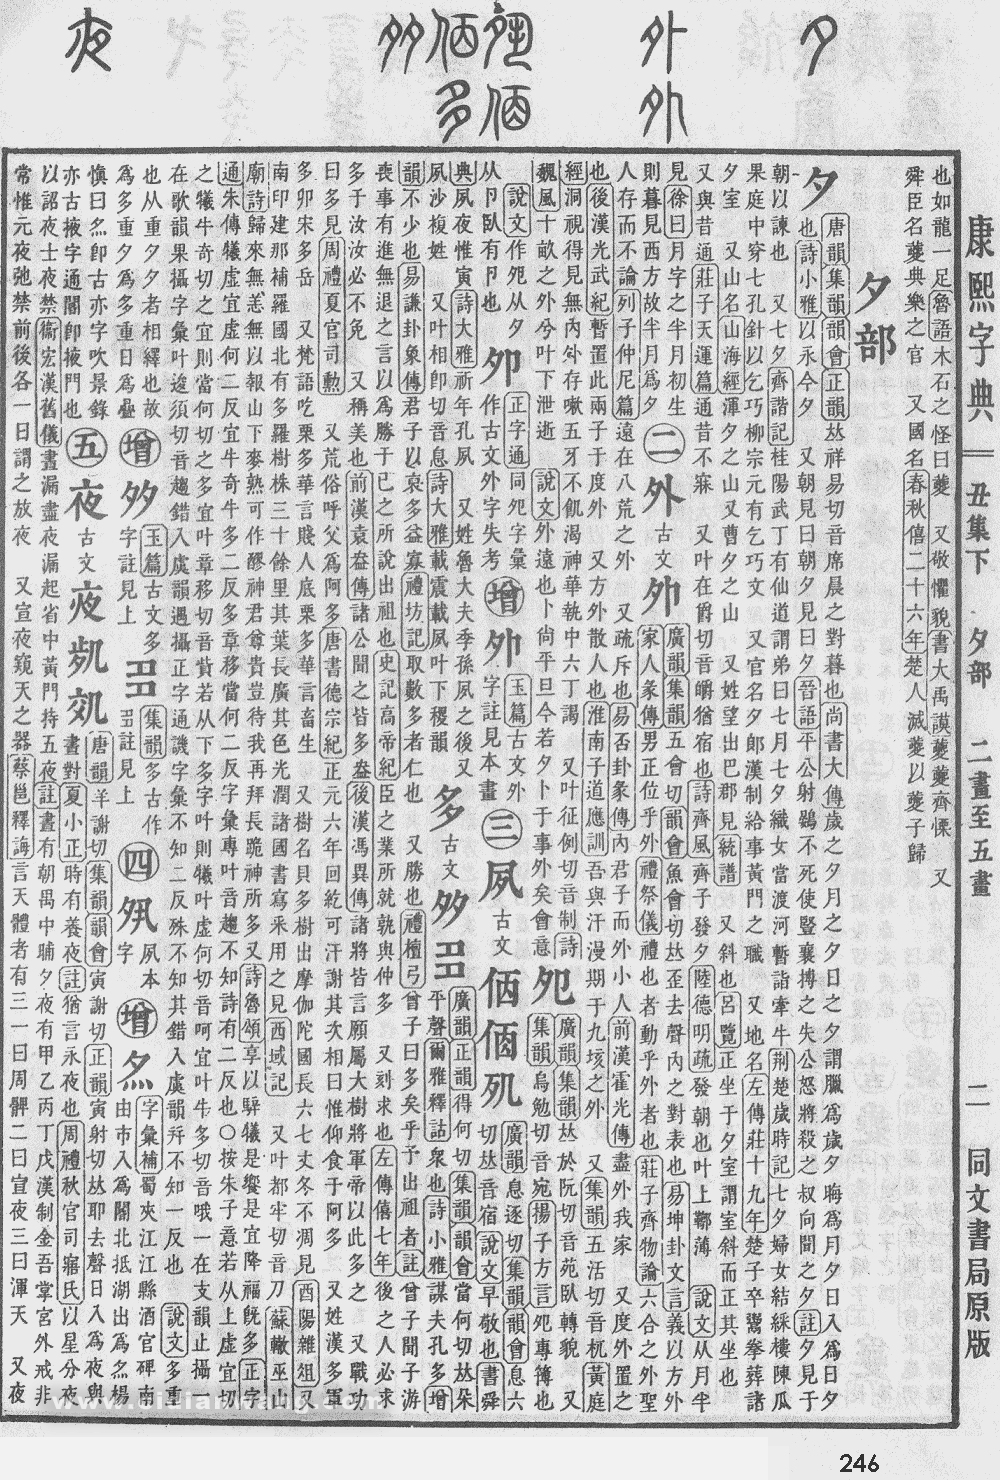 康熙字典 丑集下 夕部 二畫至五畫 二 同文書局原版
也如龍一足魯語木石之怪曰夔 又敬懼貌書大禹謨夔夔齊慄 又
舜臣名夔典樂之官 又國名春秋僖二十六年楚人滅夔以夔子歸
夕部
夕
唐韻集韻韻會正韻𠀤祥易切音席晨之對暮也尚書大傳歲之夕月之夕日之夕謂臘爲歲夕晦爲月夕日入爲日夕
也詩小雅以永今夕 又朝見曰朝夕見曰夕晉語平公射鴳不死使豎襄搏之失公怒將殺之叔向聞之夕註夕見于
朝以諫也 又七夕齊諧記桂陽武丁有仙道謂弟曰七月七夕織女當渡河暫詣牽牛荆楚歲時記七夕婦女結綵樓陳瓜
果庭中穿七孔針以乞巧柳宗元有乞巧文 又官名夕郞漢制給事黃門之職 又地名左傳莊十九年楚子卒鬻拳葬諸
夕室 又山名山海經渾夕之山又曹夕之山 又姓望出巴郡見統譜 又斜也呂覽正坐于夕室謂室斜而正其坐也
又與昔通莊子天運篇通昔不寐 又叶在爵切音皭猶宿也詩齊風齊子發夕陸德明疏發朝也叶上鞹薄 說文从月半
見徐曰月字之半月初生
則暮見西方故半月爲夕
二
外
古文
夘
廣韻集韻五會切韻會魚會切𠀤歪去聲內之對表也易坤卦文言義以方外
家人彖傳男正位乎外禮祭儀禮也者動乎外者也莊子齊物論六合之外聖
人存而不論列子仲尼篇遠在八荒之外 又疏斥也易否卦彖傳內君子而外小人前漢霍光傳盡外我家 又度外置之
也後漢光武紀暫置此兩子于度外 又方外散人也淮南子道應訓吾與汗漫期于九垓之外 又集韻五活切音杌黃庭
經洞視得見無內外存嗽五牙不飢渴神華執中六丁謁 又叶征例切音制詩
魏風十畝之外兮叶下泄逝 說文外遠也卜尙平旦今若夕卜于事外矣會意
夗
廣韻集韻𠀤於阮切音苑臥轉貌 又
集韻烏勉切音宛揚子方言夗專簙也
說文作夗从夕
从卪臥有卪也
夘
正字通同夗字彙
作古文外字失考
增
外
玉篇古文外
字註見本畫
三
夙
古文
廣韻息逐切集韻韻會息六
切𠀤音宿說文早敬也書舜
典夙夜惟寅詩大雅祈年孔夙 又姓魯大夫季孫夙之後又
夙沙複姓 又叶相卽切音息詩大雅載震載夙叶下稷韻
多
古文
廣韻正韻得何切集韻韻會當何切𠀤朵
平聲爾雅釋詁衆也詩小雅謀夫孔多增
韻不少也易謙卦象傳君子以裒多益寡禮坊記取數多者仁也 又勝也禮檀弓曾子曰多矣乎予出祖者註曾子聞子游
喪事有進無退之言以爲勝于己之所說出祖也史記高帝紀臣之業所就孰與仲多 又刻求也左傳僖七年後之人必求
多于汝汝必不免 又稱美也前漢袁盎傳諸公聞之皆多盎後漢馮異傳諸將皆言願屬大樹將軍帝以此多之 又戰功
曰多見周禮夏官司勲 又荒俗呼父爲阿多唐書德宗紀正元六年回紇可汗謝其次相曰惟仰食于阿多 又姓漢多軍
多卯宋多岳 又梵語吃栗多華言賤人底栗多華言畜生 又樹名貝多樹出摩伽陀國長六七丈冬不凋見酉陽雜俎又
南印建那補羅國北有多羅樹株三十餘里其葉長廣其色光潤諸國書寫采用之見西域記 又叶都牢切音刀蘇轍巫山
廟詩歸來無恙無以報山下麥熟可作醪神君尊貴豈待我再拜長跪神所多又詩魯頌享以騂犧是饗是宜降福旣多正字
通朱傳犧虛宜虛何二反宜牛奇牛多二反多章移當何二反字彙專叶音趨不知詩有二反也○按朱子意若从上虛宜切
之犧牛奇切之宜則當何切之多宜叶章移切音貲若从下多字叶則犧叶虛何切音呵宜叶牛多切音哦一在支韻止攝一
在歌韻果攝字彙叶逡須切音趨錯入虞韻遇攝正字通譏字彙不知二反殊不知其錯入虞韻𠀤不知一反也 說文多重
也从重夕夕者相繹也故
爲多重夕爲多重日爲疊
增
玉篇古文多
字註見上
集韻多古作
註見上
四
夙本
字
增
字彙補蜀夾江江縣酒官碑南
由市入爲閣北抵湖出爲 楊
愼曰 卽古亦字吹景錄
亦古掖字通閣卽掖門也
五
夜
古文
唐韻羊謝切集韻韻會寅謝切正韻寅射切𠀤耶去聲日入爲夜與
晝對夏小正時有養夜註猶言永夜也周禮秋官司寤氏以星分夜
以詔夜士夜禁衞宏漢舊儀晝漏盡夜漏起省中黃門持五夜註晝有朝禺中晡夕夜有甲乙丙丁戊漢制金吾掌宮外戒非
常惟元夜弛禁前後各一日謂之放夜 又宣夜窺天之器蔡邕釋誨言天體者有三一曰周髀二曰宣夜三曰渾天 又夜
246